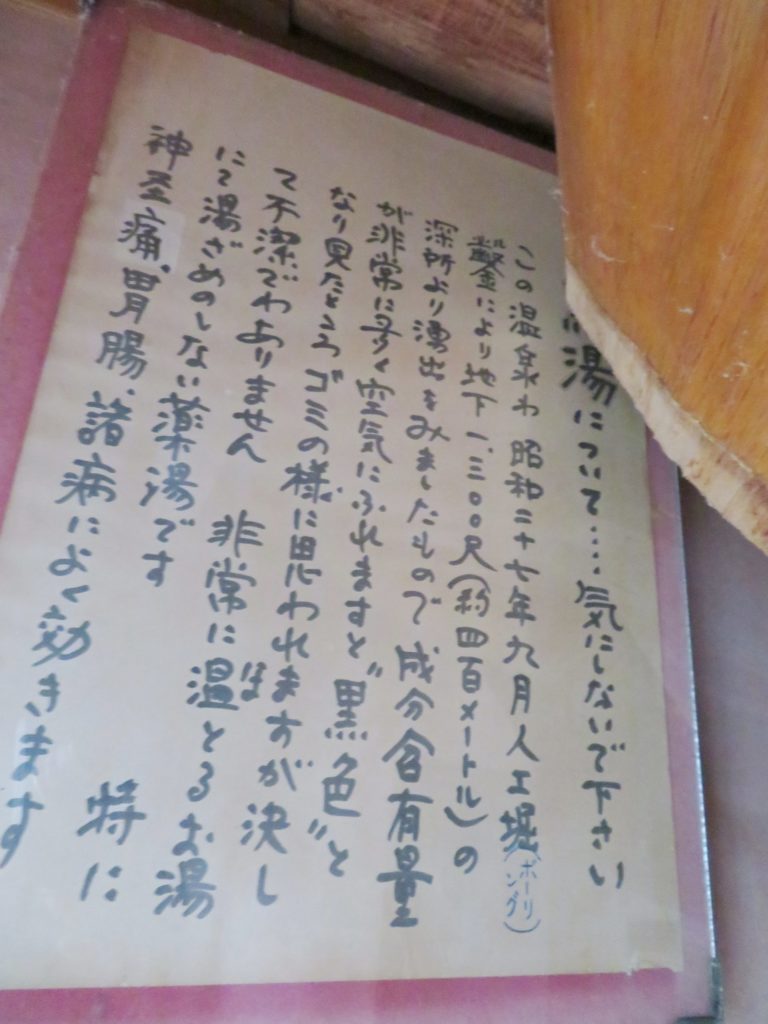 湯について‥‥気にしないで下さい
この温泉わ 昭和二十七年九月人工堀(ボーリング)
鑿により地下一、三〇〇尺(約四百メートル)の
深所より湧出をみましたもので 成分含有量
が非常に多く空気にふれますと〝黒色〟と
なり見たところゴミの様に思われますが決し
て不潔でわありません 非常に温とるお湯
ほ
にて湯ざめのしない薬湯です 特に
神圣痛、胃腸、諸病によく効きます